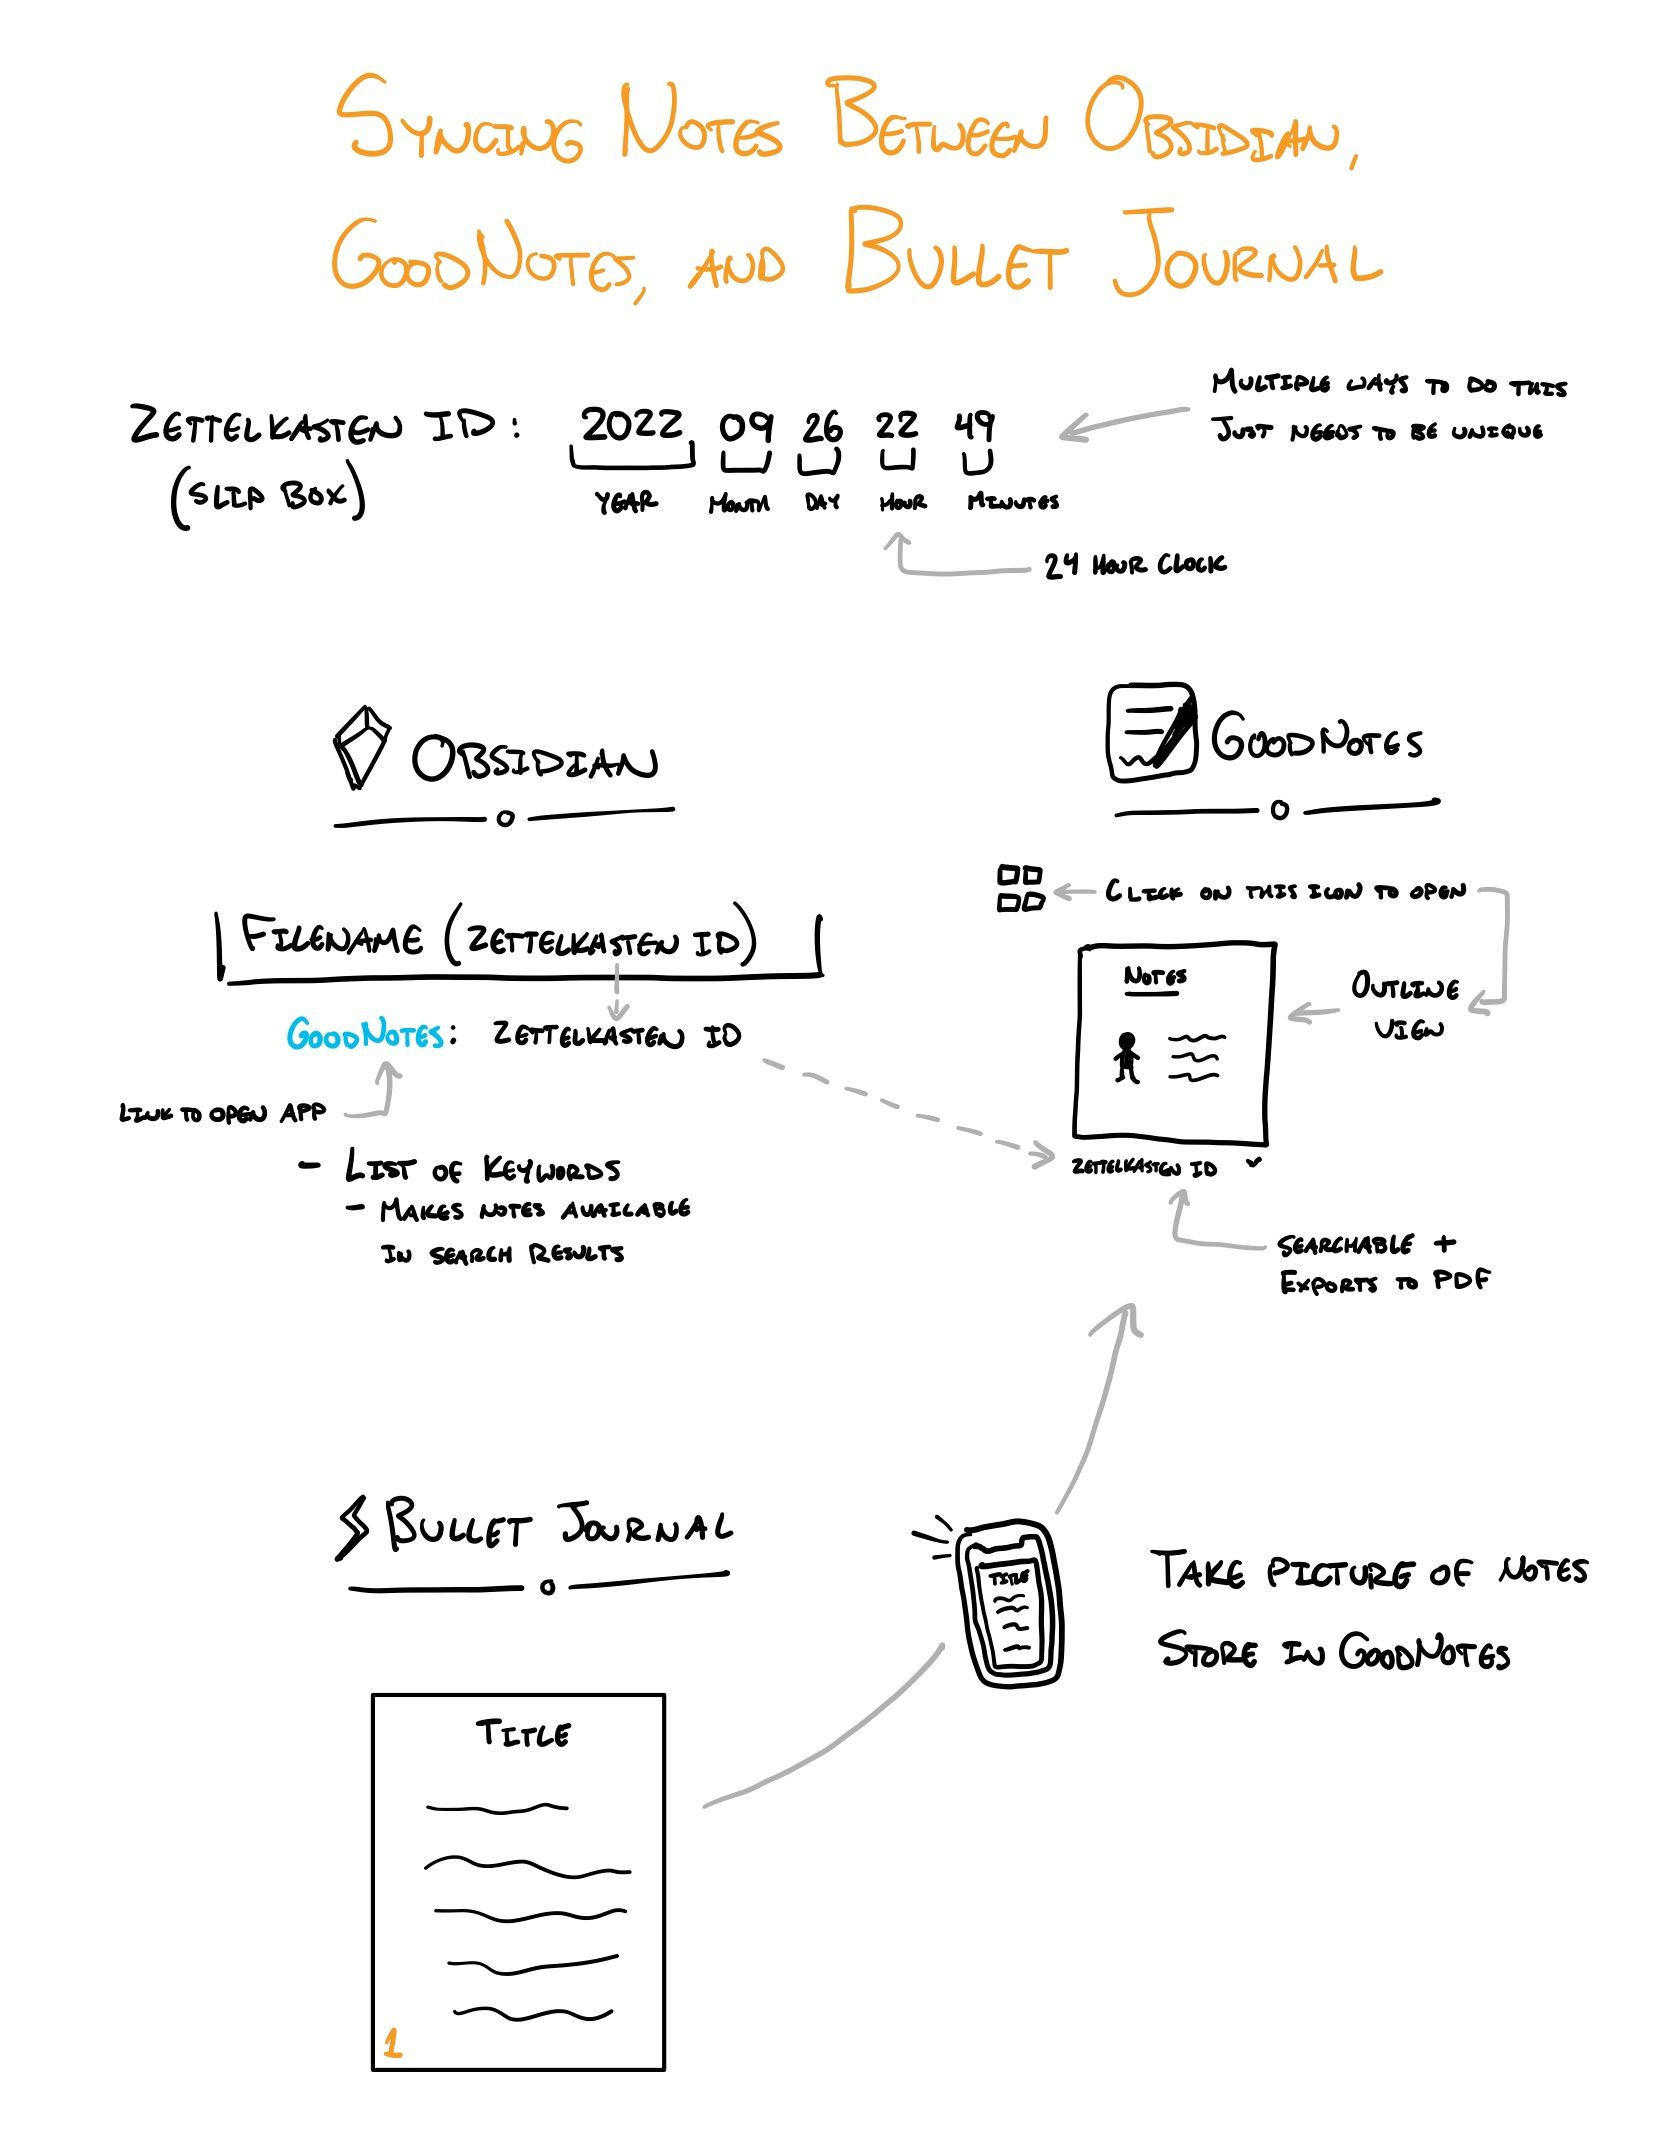 Syncing Notes Between Obsidian,
GoodNotes, and Bullet Journal
Multiple ways to do this
Just needs to be unique
Zettelkasten ID: 2022 09 26 22 49
(Slip Box)
Year Month Day Hour Minutes
24 Hour Clock
Obsidian
Filename (Zettelkasten ID)
GoodNotes: Zettelkasten ID
Link to open app
- List of Keywords
- Makes notes available
in search results
GoodNotes
Click on this icon to open
Notes
Outline
View
Zettelkasten ID
Searchable +
Exports to PDF
Bullet Journal
Title
1
Title
Take picture of notes
Store in GoodNotes